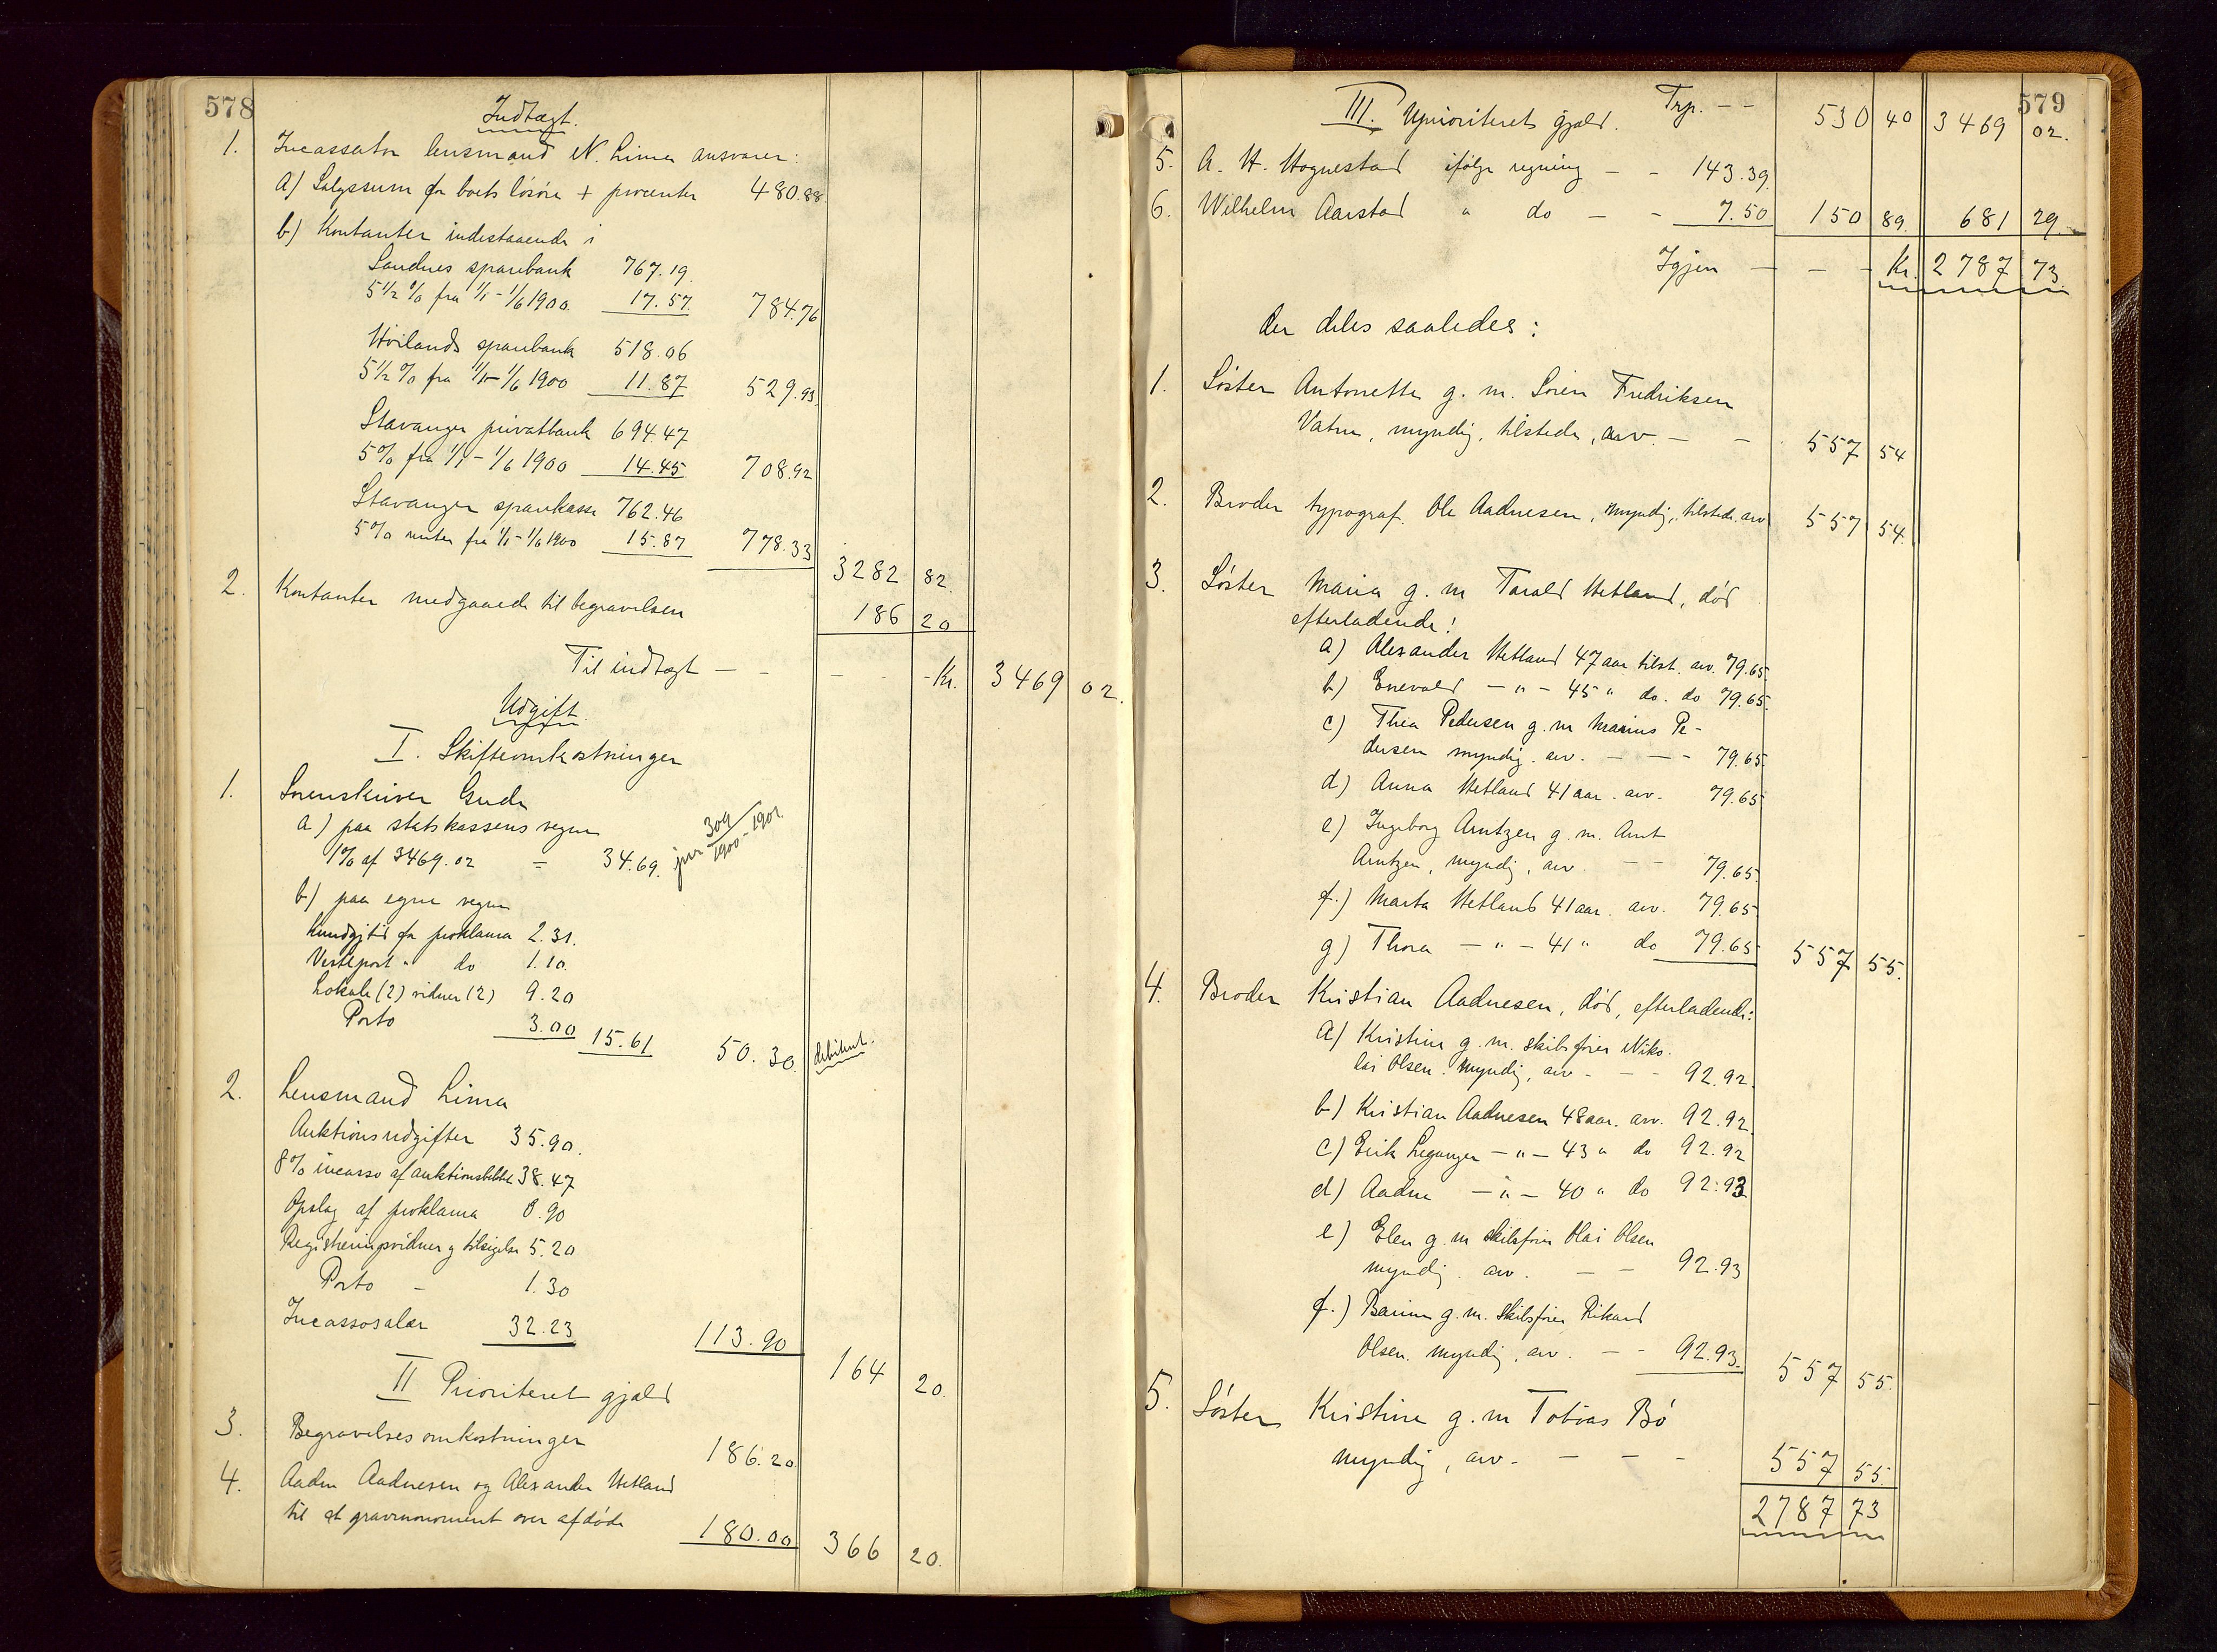 578
Indtægt.
1. Incassator lensmand N. Lima ansvarer:
a) Salgssum for boets lösöre + procenter 480.88.
b) Kontanter indestaaende i
Sandnes sparebank 767.19.
5 1/2 % fra 1/1 - 1/6 1900. 17.57. 784.76
Höilands sparebank 518.06
5 1/2 % fra 1/1 - 1/6 1900 11.87 529.93.
Stavanger privatbank 694.47
5% fra 1/1 - 1/6 1900 14.45 708.92
Stavanger sparekasse 762.46
5% renter fra 1/1 - 1/6 1900 15.87 778.33 3282 82.
2. Kontanter medgaaede til begravelsen 186 20
Til indtægt — - - - Kr. 3469 02.
Udgift.
I. Skifteomkostninger
1. Sorenskriver Gude
a) paa statskassens vegne
1% af 3469.02 = 34.69. jnr 309/1900 - 1901.
b) paa egne vegne
Kundgjtid for proklama 2.31.
Vestlpost " do 1.10.
Lokale (2) vidner (2) 9.20
Porto 3.00 15.61 50.30. debiteret.
2. Lensmand Lima
Auktionsudgifter 35.90.
8% incasso af auktionsbeløbet 38.47
Opslag af proklama 0.90
Registreringsvidner og tilsigelse 5.20
Porto - 1.30
Incassosalær 32.23 113.90 164 20.
II Prioriteret gjæld
3. Begravelsesomkostninger 186.20.
4. Aadne Aadnesen og Alexander Hetland
til et gravmonument over afdöde 180.00 366 20.
579
III. Uprioriteret gjæld. Trp. - - 530 40 3469 02.
5. A. H. Hognestad ifölge regning - - 143.39.
6. Wilhelm Aarstad " do - - 7.50 150 89. 681 29.
Igjen — - - Kr. 2787 73.
der deles saaledes:
1. Söster Antonette g. m. Sören Fredriksen
Vatne, myndig, tilstede, arv. - - 557 54
2. Broder typograf. Ole Aadnesen, myndig, tilstede. arv 557 54.
3. Söster Maria g. m Tarald Hetland, död
efterladende:
a) Alexander Hetland 47 aar tilst. arv. 79.65
b) Enevald - " - 45 " do. do 79.65.
c) Thea Pedersen g. m Marius Pe-
dersen myndig. arv. - - - 79.65
d) Anna Hetland 41 aar. arv. 79.65
e) Ingeborg Arntzen g. m. Arnt
Arntzen, myndig, arv. - - 79.65.
f.) Marta Hetland 41 aar. arv. 79.65
g) Thora - " - 41 " do 79.65 557 55.
4. Broder Kristian Aadnesen, död, efterladende:
a) Kristine g. m. skibsförer Niko-
lai Olsen. myndig, arv - - - 92.92.
b) Kristian Aadnesen 48 aar. arv. 92.92.
c) Erik Leganger - " - 43 " do 92.92
d) Aadne - " - 40 " do 92.93
e) Elen g. m skibsförer Olai Olsen
myndig. arv. - - 92.93
f.) Barine g. m. skibsförer Rikard
Olsen. myndig, arv. - - 92.93. 557 55.
5. Söster Kristine g. m Tobias Bö
myndig, arv. - - - 557 55.
2787 73